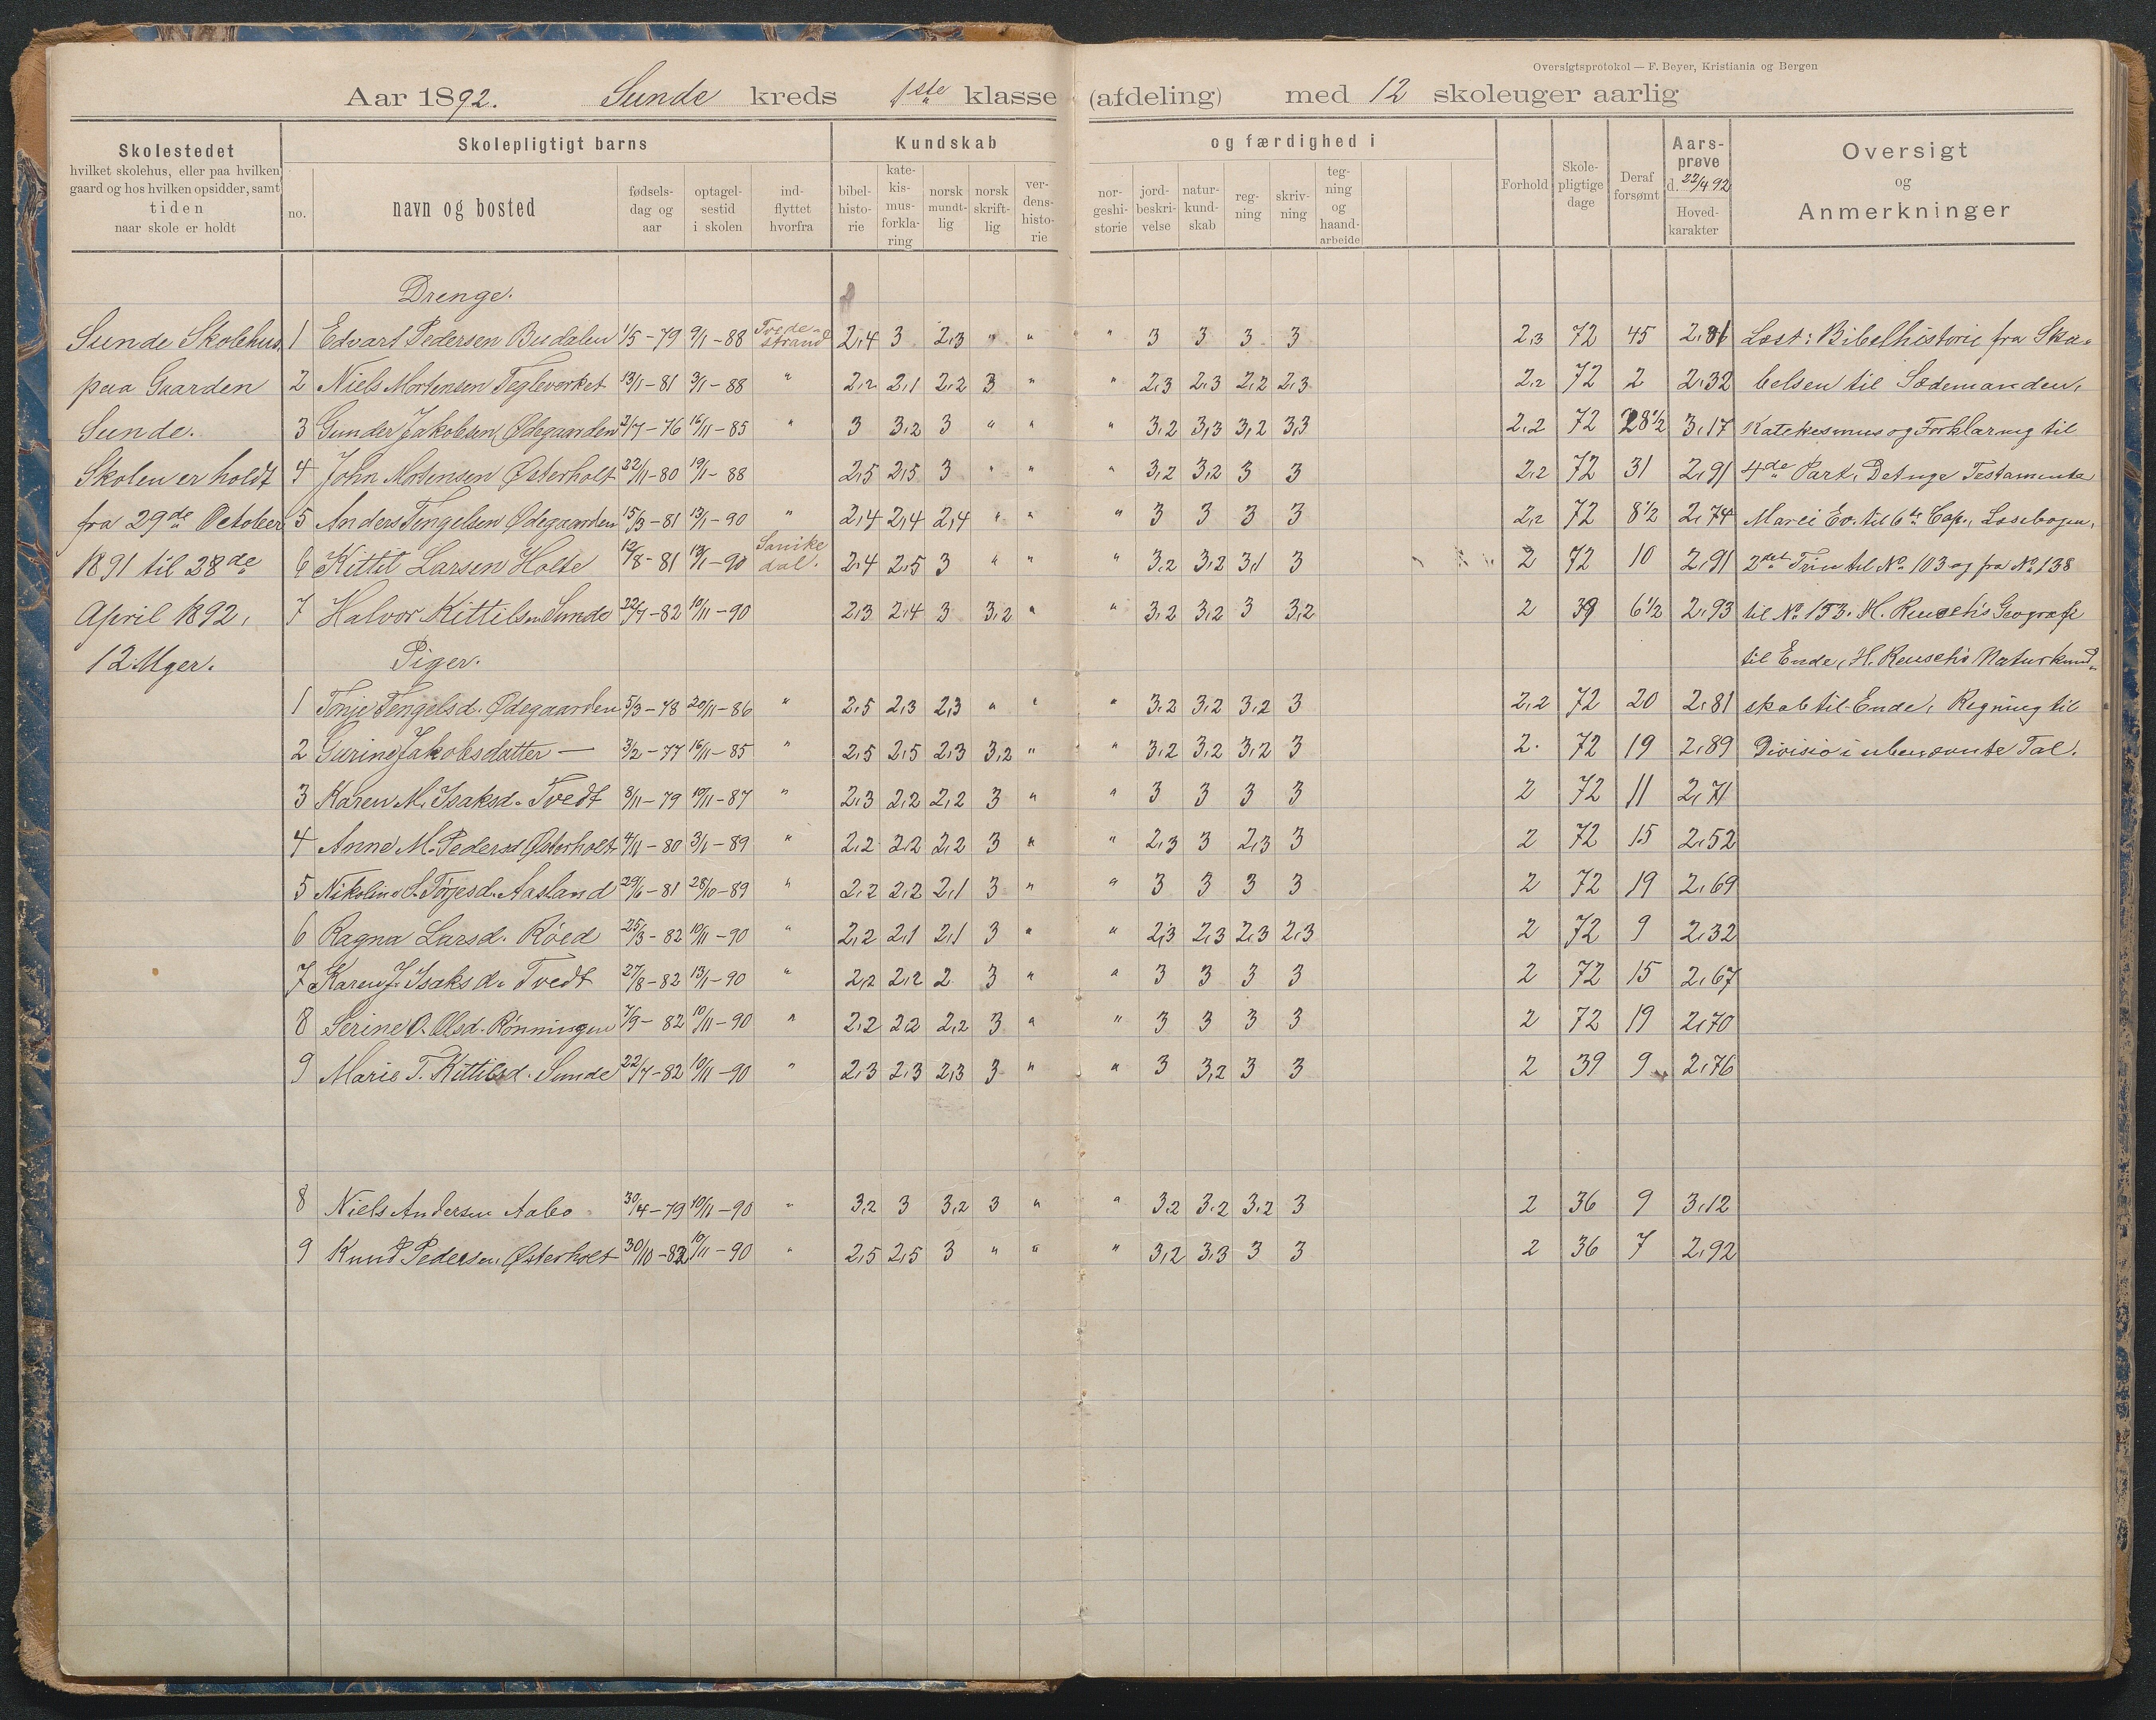 Oversigtsprotokol — F. Beyer, Kristiania og Bergen
Aar 1892. Sunde kreds 1ste klasse (afdeling) med 12 skoleuger aarlig
Skolestedet
hvilket skolehus, eller paa hvilken
gaard og hos hvilken opsidder, samt
tiden
naar skole er holdt
Skolepligtigt barns
no.
navn og bosted
fødsels-
dag og
aar
optagel-
sestid
i skolen
ind-
flyttet
hvorfra
Kundskab og færdighed i
bibel-
histo-
rie
kate-
kis-
mus-
forkla-
ring
norsk
mundt-
lig
norsk
skrift-
lig
ver-
dens-
histo-
rie
nor-
geshi-
storie
jord-
beskri-
velse
natur-
kund-
skab
reg-
ning
skriv-
ning
teg-
ning
og
haand-
arbeide
Forhold
Skole-
pligtige
dage
Deraf
forsømt
Aars-
prøve
d. 22/4 92
Hoved-
karakter
Oversigt
og
Anmerkninger
Drenge.
Sunde Skolehus 1 Edvart Pedersen Busdalen 1/5-79 9/1-88 Tvede-strand 2,4 3 2,3 " " " 3 3 3 3 2,3 72 45 2,81 Læst: Bibelhistorie fra Ska-
paa Gaarden 2 Niels Mortensen Teglverket 13/11-81 3/1-88 " 2,2 2,1 2,2 3 " " 2,3 2,3 2,2 2,3 2,2 72 2 2,32 belsen til Sædemanden,
Sunde. 3 Gunder Jakobsen Ødegaarden 2/7-76 16/11-85 " 3 3,2 3 " " " 3,2 3,3 3,2 3,3 2,2 72 28 1/2 3,17 Katekesmus og Forklaring til
Skolen er holdt 4 John Mortensen Østerholt 22/11-80 19/1-88 2,5 2,5 3 " " " 3,2 3,2 3 3 2,2 72 31 2,91 4de Part, Det nye Testamente
fra 29de October 5 Anders Tengelsen Ødegaarden 15/3-81 13/1-90 " 2,4 2,4 2,4 " " " 3 3 3 3 2,2 72 8 1/2 2,74 Marci Ev. til 6te Cap., Læsebogen,
1891 til 28de 6 Kittil Larsen Holte 12/8-81 13/1-90 Sanikedal. 2,4 2,5 3 " " " 3,2 3,2 3,1 3 2 72 10 2,91 2det Trin til No 103 og fra No 138
April 1892, 7 Halvor Kittilsen Sunde 22/7-82 10/11-90 2,3 2,4 3 3,2 " " 3,2 3,2 3 3,2 2 39 6 1/2 2,93 til No 153. H. Reusch's Geografi
12 Uger. Piger. til Ende, H. Reusch's Naturkund-
1 Tonje Tengelsd. Ødegaarden 5/3-78 20/11-86 " 2,5 2,3 2,3 " " " 3,2 3,2 3,2 3 2,2 72 20 2,81 skab til Ende, Regning til
2 Gurine Jakobsdatter — 3/2-77 16/11-85 " 2,5 2,5 2,3 3,2 " " 3,2 3,2 3,2 3 2. 72 19 2,89 Divisio i ubenævnte Tal.
3 Karen M. Isaksd. Tvedt 8/11-79 10/11-87 " 2,3 2,2 2,2 3 " " 3 3 3 3 2 72 11 2,71
4 Anne M. Pedersd Østerholt 4/11-80 3/1-89 " 2,2 2,2 2,2 3 " " 2,3 3 2,3 3 2 72 15 2,52
5 Nikoline S. Törjesd. Aasland 29/6-81 28/10-89 " 2,2 2,2 2,1 3 " " 3 3 3 3 2 72 19 2,69
6 Ragna Larsd. Röed 25/3-82 10/11-90 " 2,2 2,1 2,1 3 " " 2,3 2,3 2,3 2,3 2 72 9 2,32
7 Karen J. Isaksd. Tvedt 27/8-82 13/1-90 " 2,2 2,2 2 3 " " 3 3 3 3 2 72 15 2,67
8 Serine O. Olsd. Rönningen 7/9-82 10/11-90 " 2,2 2,2 2,2 3 " " 3 3 3 3 2 72 19 2,70
9 Marie T. Kittilsd. Sunde 22/7-82 10/11-90 " 2,3 2,3 2,3 3 " " 3 3,2 3 3 2 39 9 2,76
8 Niels Andersen Aabo 30/4-79 10/11-90 " 3,2 3 3,2 3 " " 3,2 3,2 3,2 3 2 36 9 3,12
9 Knud Pedersen Østerholt 30/10-82 10/11-90 " 2,5 2,5 3 " " " 3,2 3,3 3 3 2 36 7 2,92